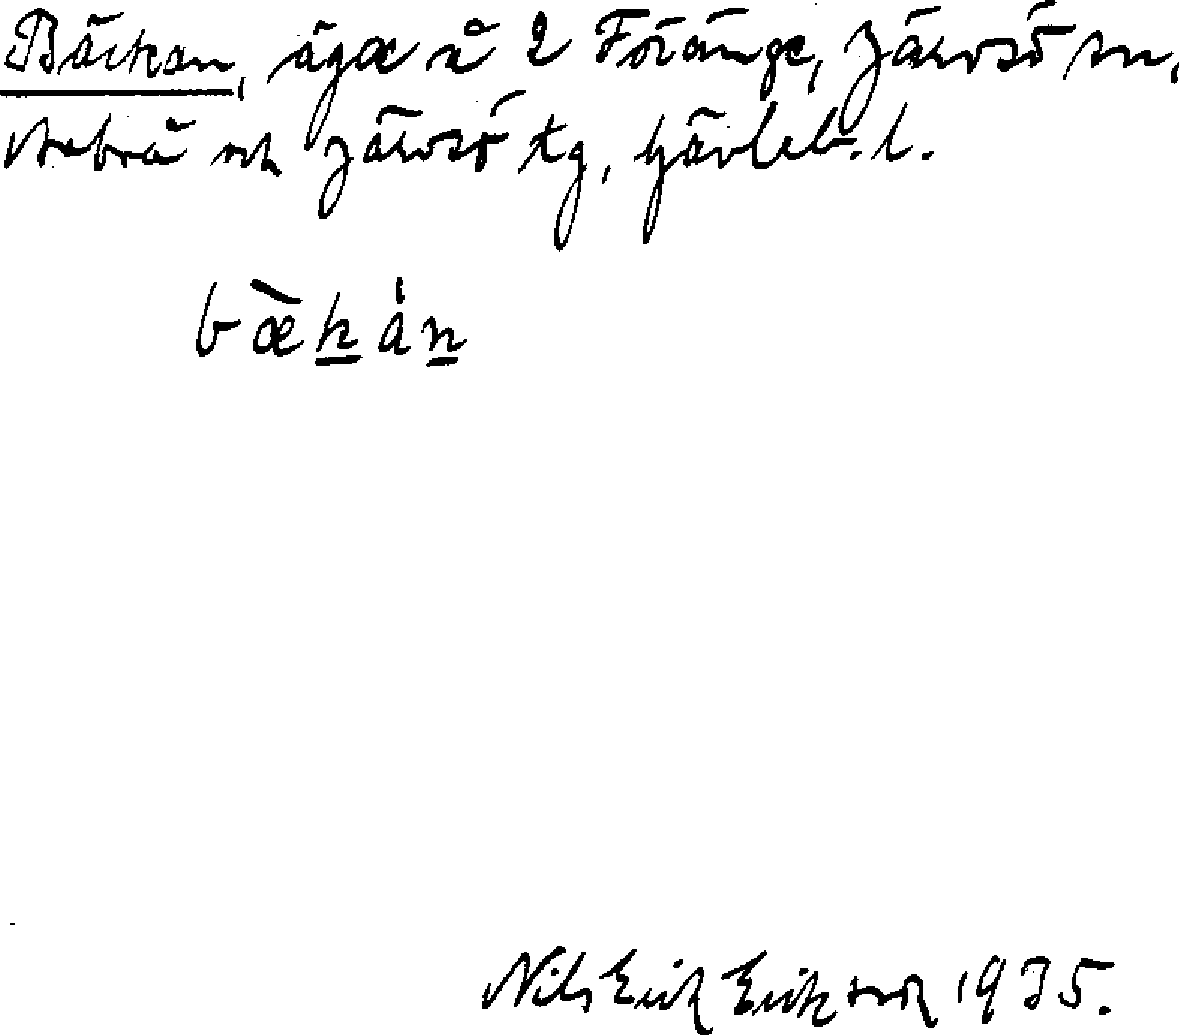 Bäckan, äga å 2 Föränge, Järvsö sn,
Arbrå och Järvsö tg, Gävleb. l.
bæ̀kàn
Nils Erik Eriksson 1935.